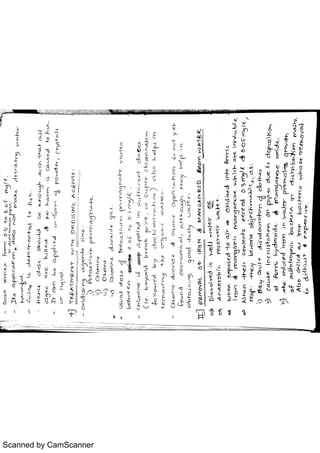 - Dose varies from 0.5 to 0.65 mg/l.
Its operation does not make drinking water harmful.
CuSO4 is detrimental to fish.
Hence dose should be enough such that all
algae are killed & no harm is caused to fish.
It can be applied in form of powder, crystals
or liquid.
7) TREATMENT WITH OXIDISING AGENTS:
- Oxidising agents
i) Potassium permanganate
ii) Chlorine
iii) Ozone
iv) Chlorine dioxide gas
• Usual dose of Potassium permanganate varies
between 0.05 to 0.1 mg/l.
- Chlorine added in sufficient doses
(i.e. beyond break point, or super chlorination
followed by dechlorination) also helps in
removing the organic matter.
- Chlorine dioxide & ozone application is not yet
found economical although they help
obtaining good tasty water.
II] REMOVAL OF IRON & MANGANESE FROM WATER
⇒ Dissolved in well water OR
Anaerobic reservoir water.
⇒ When exposed to air → oxidised into ferric
iron & manganic manganese which are insoluble
⇒ When their contents exceed 0.3 mg/l & 0.05 mg/l,
resp. they become objectionable, as:
i) They cause discolouration of clothes
ii) cause incrustation in pipes due to deposition
of ferric hydroxide & manganese oxide.
iii) The reduced iron in water promotes growth
of autotrophic bacteria in distribution mains
Also called as iron bacteria whose removal
is difficult & expensive.
Scanned by CamScanner